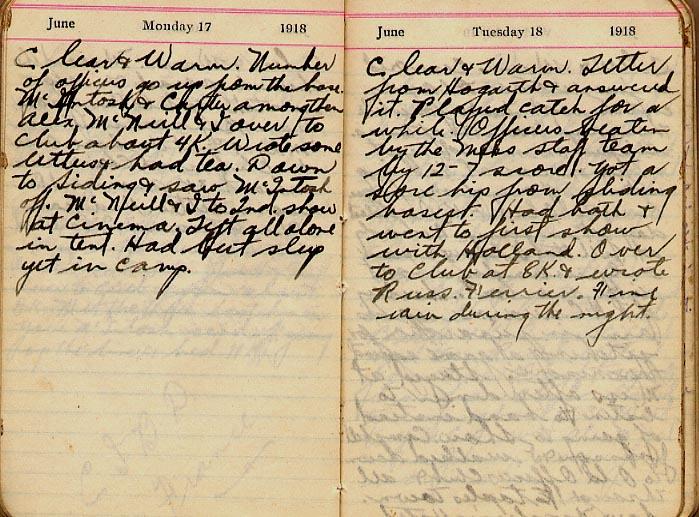 June Monday 17 1918
Clear & Warm. Number
of officers go up from the base.
McIntosh & Carter among them
Alex McNeill & I over to
Club about 4K. Wrote some
letters & had tea. Down
to siding & saw McIntosh
off. McNeill & I to 2nd. show
at Cinema. Left all alone
in tent. Had best sleep
yet in camp.
C I B D
France
June Tuesday 18 1918
Clear & Warm. Letter
from Hogarth & answered
it. Played catch for a
while. Officers beaten
by the Mess staff team
by 12-7 score. Got a
sore hip from sliding
bases. Had bath &
went to first show
with Holland. Over
to Club at 8K & wrote
Russ. Ferrier. Fine
rain during the night.